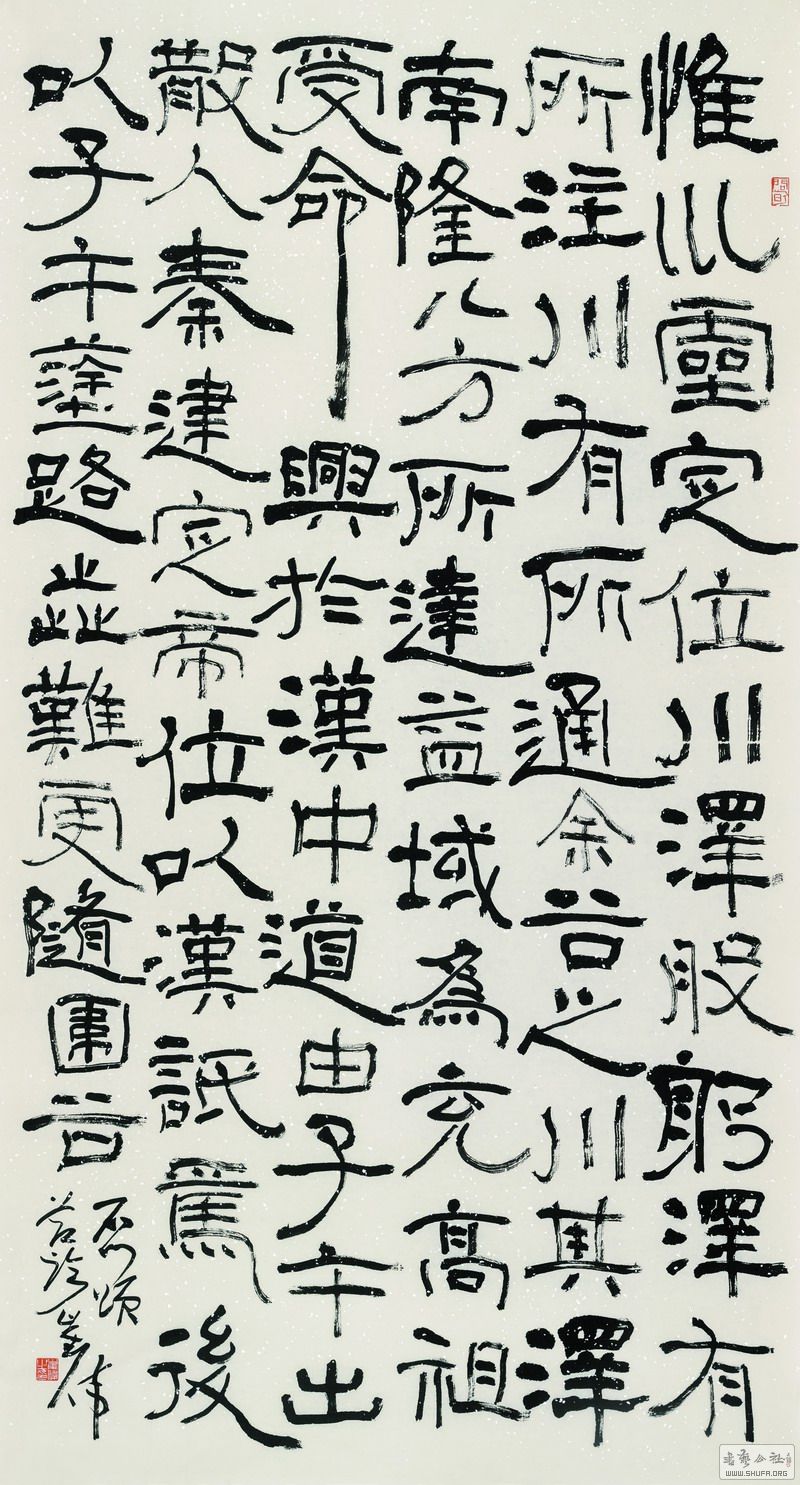 惟巛靈定位川澤股躬澤有
所注川有所通余谷之川其澤
南隆八方所達益域為充高祖
受命興於漢中道由子午出
散入秦建定帝位以漢詆焉後
以子午塗路歰難更隨圍谷
石门颂
崔伟
書藝公社
WWW.SHUFA.ORG